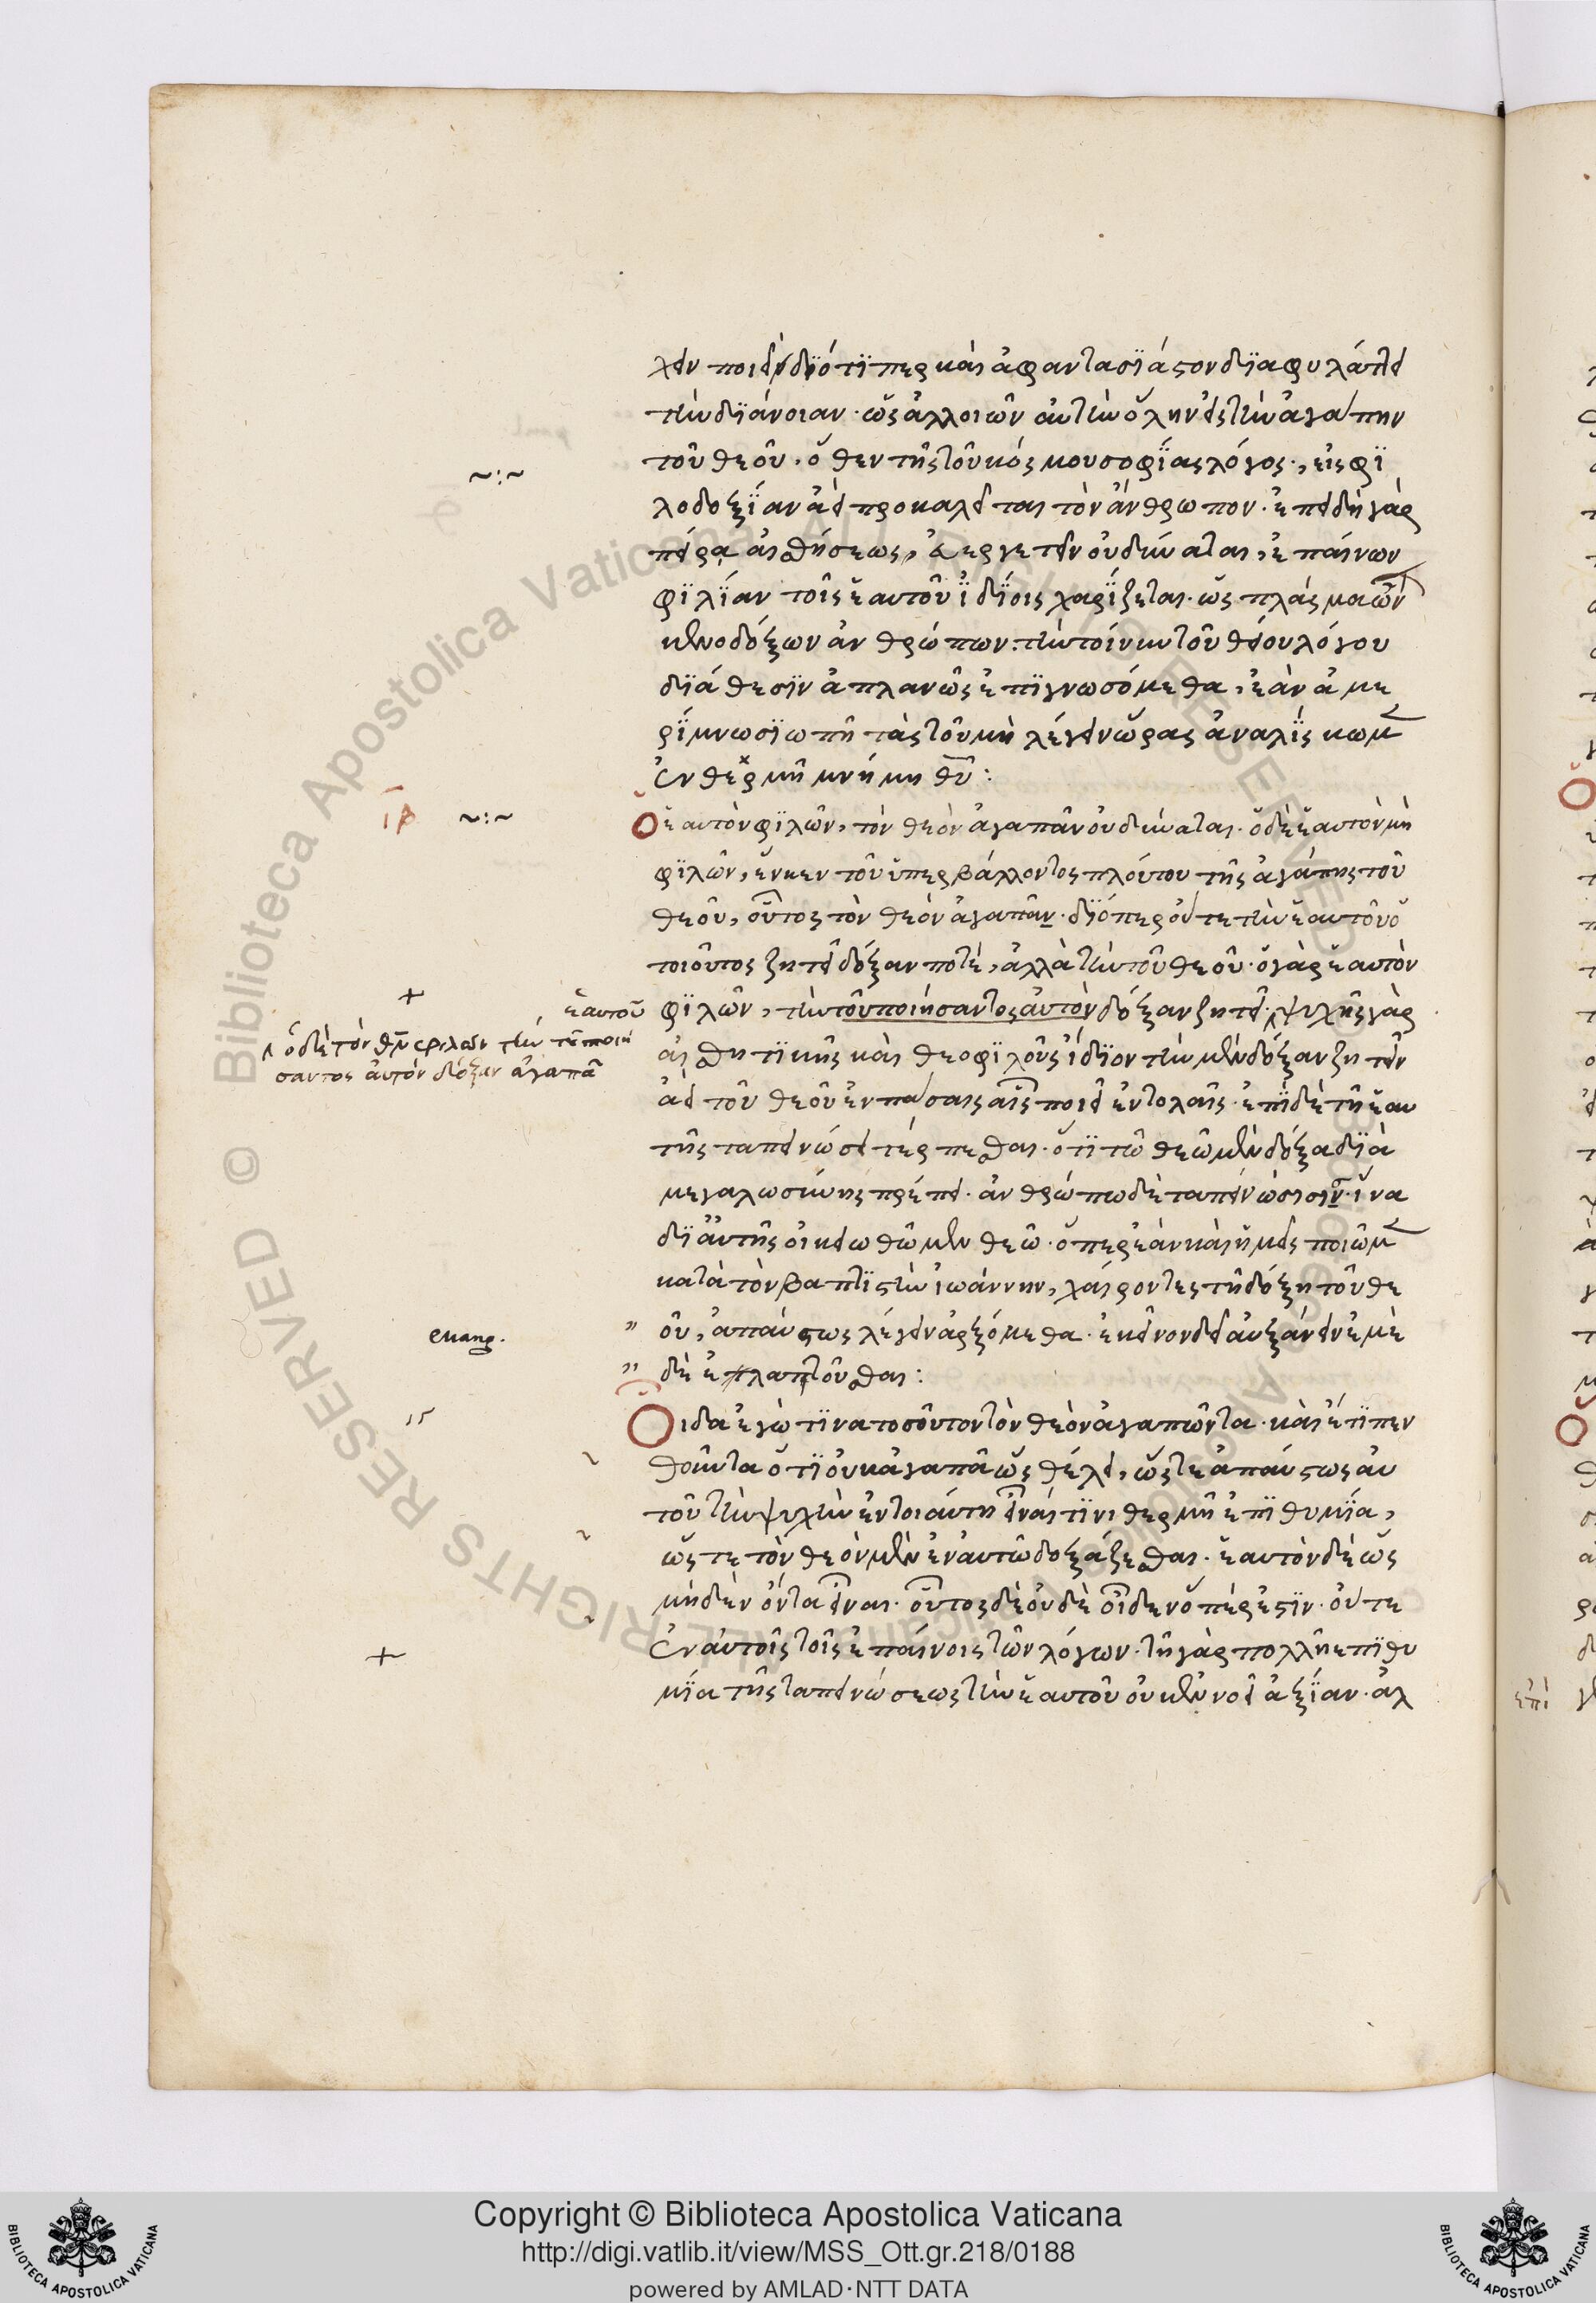 λειν ποιεῖ διότι περ καὶ ἀφαντασίαστον διαφυλάττει
τὴν διάνοιαν· ὡς ἀλλοιῶν αὐτὴν ὅλην εἰς τὴν ἀγάπην
τοῦ θεοῦ· ὅθεν τῆς τοῦ κόσμου σοφίας λόγος, εἰς φι
λοδοξίαν ἀεὶ προκαλεῖται τὸν ἄνθρωπον· ἐπειδὴ γὰρ
πείρα αἰσθήσεως, εὐεργετεῖν οὐ δύναται, ἐπαίνων
φιλίαν τοῖς ἑαυτοῦ ἰδίοις χαρίζεται· ὡς πλάσμα ὢν
κενοδόξων ἀνθρώπων· τὴν τοίνυν τοῦ θείου λόγου
διάθεσιν ἀπλανῶς ἐπιγνωσόμεθα, ἐὰν ἀμε
ρίμνω σιωπῇ τὰς τοῦ μὴ λέγειν ὥρας ἀναλίσκωμ
ἐν θερμῇ μνήμῃ θυ:
ιβ
~:~
~:~
Ὁ ἑαυτὸν φιλῶν, τὸν θεὸν ἀγαπᾶν οὐ δύναται· ὁ δὲ ἑαυτὸν μὴ
φιλῶν, ἕνκεν τοῦ ὑπερβάλλοντος πλούτου τῆς ἀγάπης τοῦ
θεοῦ, οὗτος τὸν θεὸν ἀγαπᾶν· διόπερ οὔτε τὴν ἑαυτοῦ ὁ
τοιοῦτος ζητεῖ δόξαν ποτέ, ἀλλὰ τὴν τοῦ θεοῦ· ὁ γὰρ ἑαυτὸν
φιλῶν, τὴν τοῦ ποιήσαντος αὐτὸν δόξαν ζητεῖ· ψυχῆς γὰρ
ἑαυτοῦ
ὁ δὲ τὸν θν φιλῶν τὴν τοῦ ποιή
σαντος αὐτὸν δόξαν ἀγαπᾶ
αἰσθητικῆς καὶ θεοφιλοῦς ἴδιον τὴν μὲν δόξαν ζητεῖν
ἀεὶ τοῦ θεοῦ ἐν πάσαις αἷς ποιεῖ ἐντολαῖς· ἐπὶ δὲ τῆ ἑαυ
τῆς ταπεινώσει τέρπεσθαι· ὅτι τῶ θεῶ μὲν δόξα διὰ
μεγαλωσύνης πρέπει· ἀνθρώπω δὲ ταπείνωσισιν· ἵνα
δι αὐτῆς οἰκειωθῶμεν θεῶ· ὅπερ ἐὰν καὶ ἡμεῖς ποιῶμ
κατὰ τὸν βαπτιστὴν ἰωάννην, χαίροντες τῆ δόξη τοῦ θε
οῦ, ἀπαύστως λέγειν ἀρξόμεθα· ἐκεῖνον δεῖ αὐξάνειν ἐμὲ
δὲ ἐλαττοῦσθαι:
euang.
Οἶδα ἐγὼ τινα τοσοῦτον τὸν θεὸν ἀγαπῶντα· καὶ ἔτι πεν
θοῦντα ὅτι οὐκ ἀγαπᾶ ὡς θέλει, ὥστε ἀπαύστως αὐ
τοῦ τὴν ψυχὴν ἐν τοιαύτη εἶναί τινι θερμῆ ἐπιθυμία,
ὥστε τὸν θεὸν μὲν ἐν αὐτῶ δοξάζεσθαι· ἑαυτὸν δὲ ὡς
μηδὲν ὄντα εἶναι· οὗτος δὲ οὐδὲ οἶδεν ὅπέρ ἐστιν· οὔτε
ἐν αὐτοῖς τοῖς ἐπαίνοις τῶν λόγων· τῆ γὰρ πολλῆ ἐπιθυ
μία τῆς ταπεινώσεως τὴν ἑαυτοῦ οὐ μὲν νοεῖ ἀξίαν· ἀλ
BIBLIOTECA APOSTOLICA VATICANA
Copyright © Biblioteca Apostolica Vaticana
http://digi.vatlib.it/view/MSS_Ott.gr.218/0188
powered by AMLAD·NTT DATA
BIBLIOTECA APOSTOLICA VATICANA